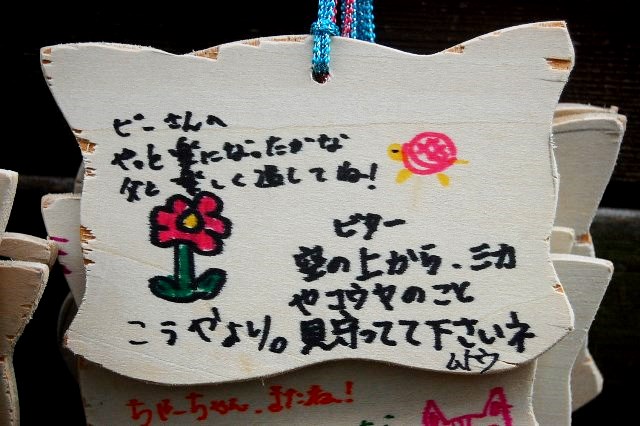 ビーさんへ
やっと楽になったかな
楽しく過してね!
こうやより。
ビター
空の上から、ミカ
やコウヤのこと
見守ってて下さいネ
ちゃーちゃん、またね!